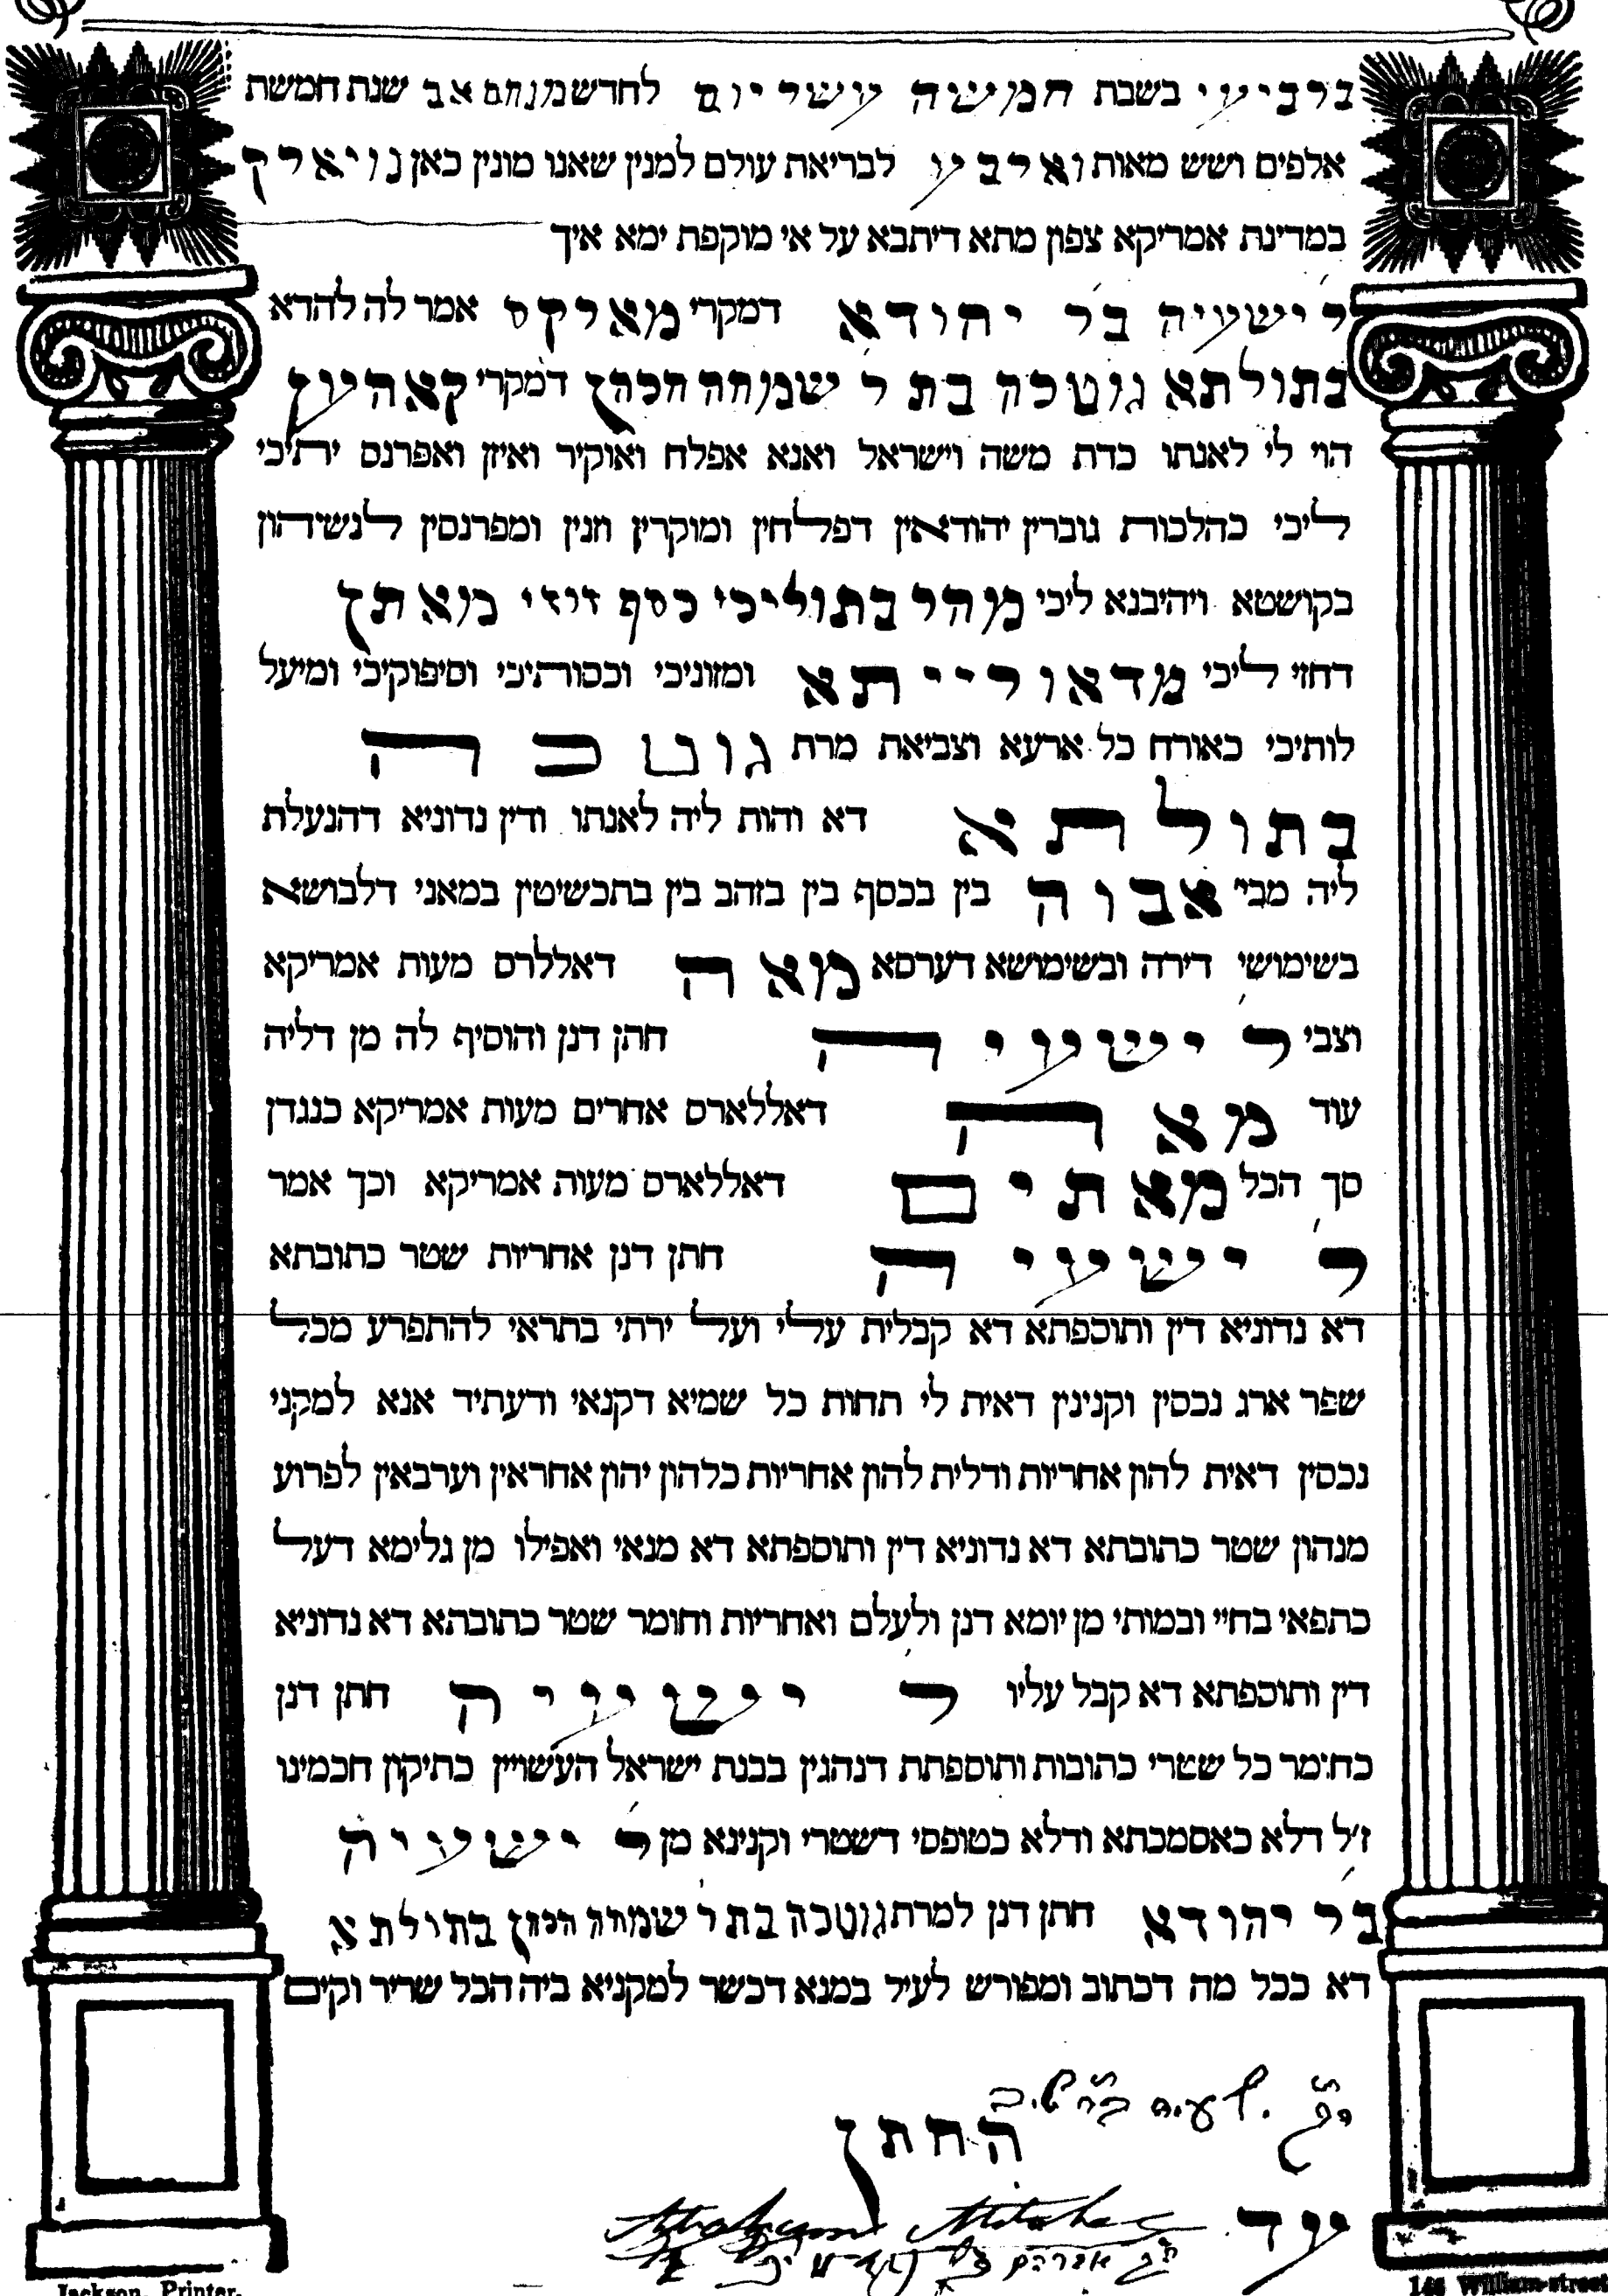 ברביעי בשבת חמשה עשר יום לחדש מנחם אב שנת חמשת
אלפים ושש מאות וארבע לבריאת עולם למנין שאנו מונין כאן נויארק
במדינת אמריקא צפון מתא דיתבא על אי מוקפת ימא איך
ר' ישעיה בר יהודא דמקרי מארקס אמר לה להדא
בתולתא גוטכה בת ר' שמחה הכהן דמקרי קאהען
הוי לי לאנתו כדת משה וישראל ואנא אפלח ואוקיר ואיזן ואפרנס יתיכי
ליכי כהלכות גוברין יהודאין דפלחין ומוקרין וזנין ומפרנסין לנשיהון
בקושטא ויהיבנא ליכי מהר בתוליכי כסף זוזי מאתן
דחזי ליכי מדאורייתא ומזוניכי וכסותיכי וסיפוקיכי ומיעל
לותיכי כאורח כל ארעא וצביאת מרת גוטכה
בתולתא דא והות ליה לאנתו ודין נדוניא דהנעלת
ליה מבי אבוה בין בכסף בין בזהב בין בתכשיטין במאני דלבושא
בשימושי דירה ובשימושא דערסא מאה דאללרס מעות אמריקא
וצבי ר' ישעיה חתן דנן והוסיף לה מן דליה
עוד מאה דאללארס אחרים מעות אמריקא כנגדן
סך הכל מאתים דאללארס מעות אמריקא וכך אמר
ר' ישעיה חתן דנן אחריות שטר כתובתא
דא נדוניא דין ותוכפתא דא קבלית עלי ועל ירתי בתראי להתפרע מכל
שפר ארג נכסין וקנינין דאית לי תחות כל שמיא דקנאי ודעתיד אנא למקני
נכסין דאית להון אחריות ודלית להון אחריות כלהון יהון אחראין וערבאין לפרוע
מנהון שטר כתובתא דא נדוניא דין ותוספתא דא מנאי ואפילו מן גלימא דעל
כתפאי בחיי ובמותי מן יומא דנן ולעלם ואחריות וחומר שטר כתובתא דא נדוניא
דין ותוכפתא דא קבל עליו ר' ישעיה חתן דנן
כחומר כל שטרי כתובות ותוספתת דנהגין בבנת ישראל העשויין כתיקון חכמינו
ז"ל דלא כאסמכתא ודלא כטופסי דשטרי וקנינא מן ר' ישעיה
בר יהודא חתן דנן למרת גוטכה בת ר' שמחה הכהן בתולתא
דא בכל מה דכתוב ומפורש לעיל במנא דכשר למקניא ביה הכל שריר וקים
החתן
עד Abraham
Jackson, Printer.
William-street